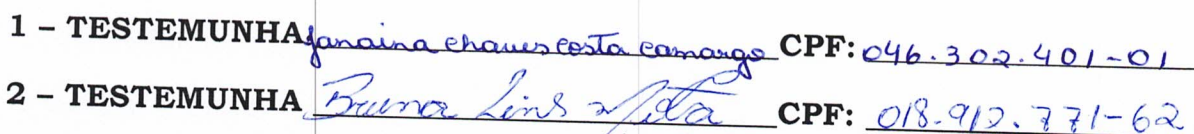 1 – TESTEMUNHA Janaina chaves costa camargo CPF: 046.302.401-01
2 – TESTEMUNHA Bruna Lins CPF: 018.912.771-62